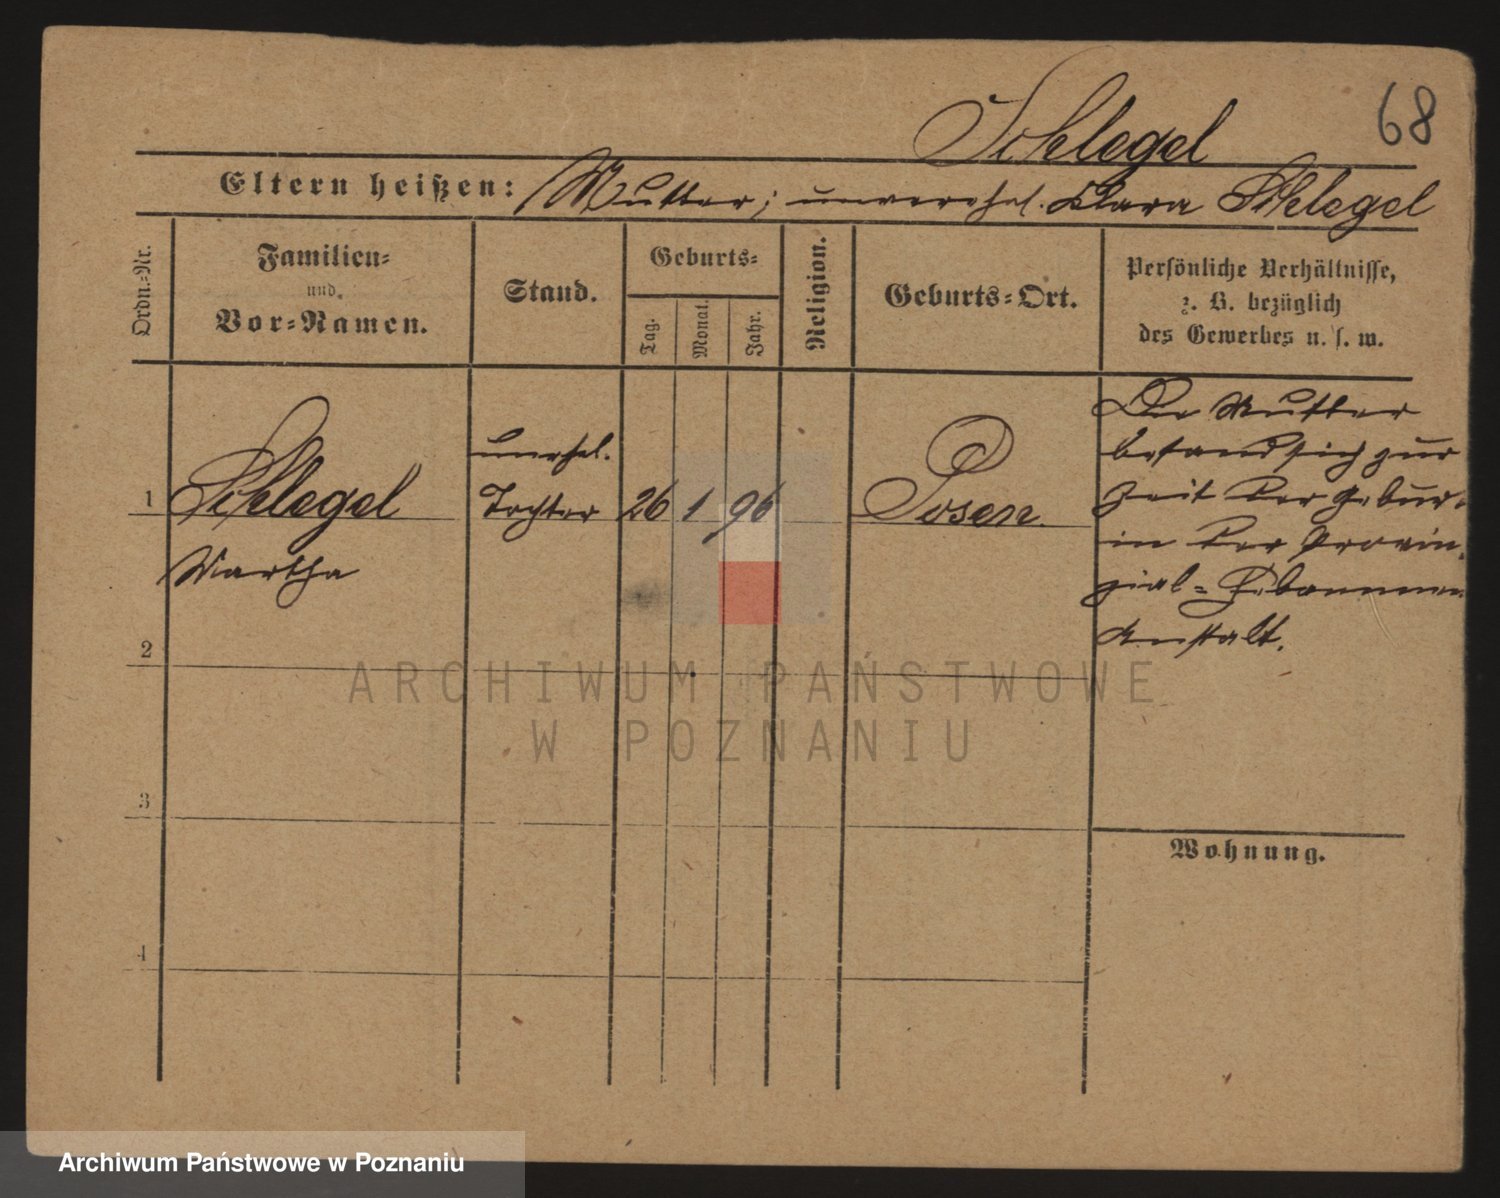 68
Schlegel
Eltern heißen: Mutter; unverehel. Clara Schlegel
Ordn.-Nr.
Familien-
und
Vor-Namen.
Stand.
Geburts-
Tag.
Monat.
Jahr.
Religion.
Geburts-Ort.
Persönliche Verhältnisse,
z. B. bezüglich
des Gewerbes u. s. w.
1
Schlegel
Martha
unehel.
Tochter
26
1
96
Posen
Die Mutter
befand sich zur
Zeit der Gebur-
in der Provin-
zial-Hebammen
Anstalt.
2
3
4
Wohnung.
ARCHIWUM PAŃSTWOWE
W POZNANIU
Archiwum Państwowe w Poznaniu